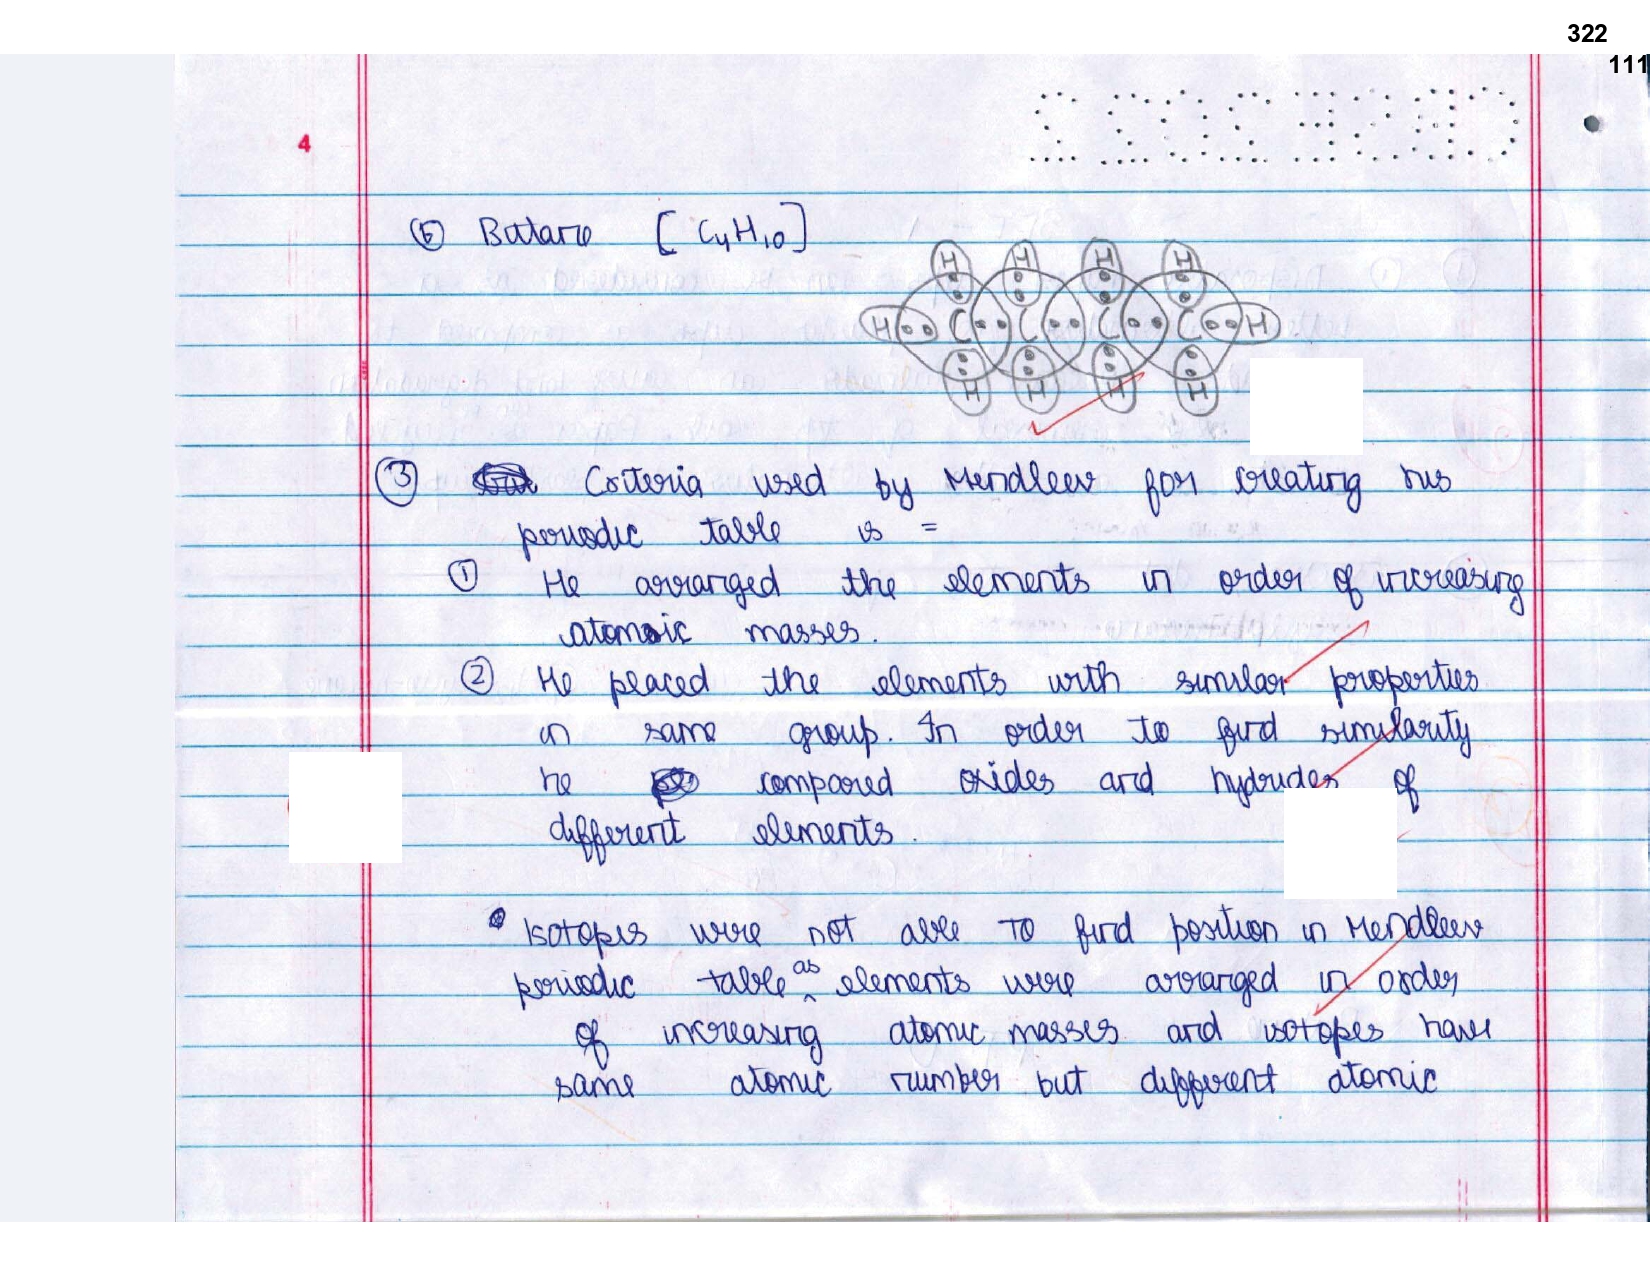 322
111
4
(b) Butane [C4H10]
H H H H
H C C C C H
H H H H
③ Criteria used by Mendleev for creating his
periodic table is =
① He arranged the elements in order of increasing
atomic masses.
② He placed the elements with similar properties
in same group. In order to find similarity
he compared oxides and hydrides of
different elements.
Isotopes were not able to find position in Mendleev
periodic table as elements were arranged in order
of increasing atomic masses and isotopes have
same atomic number but different atomic